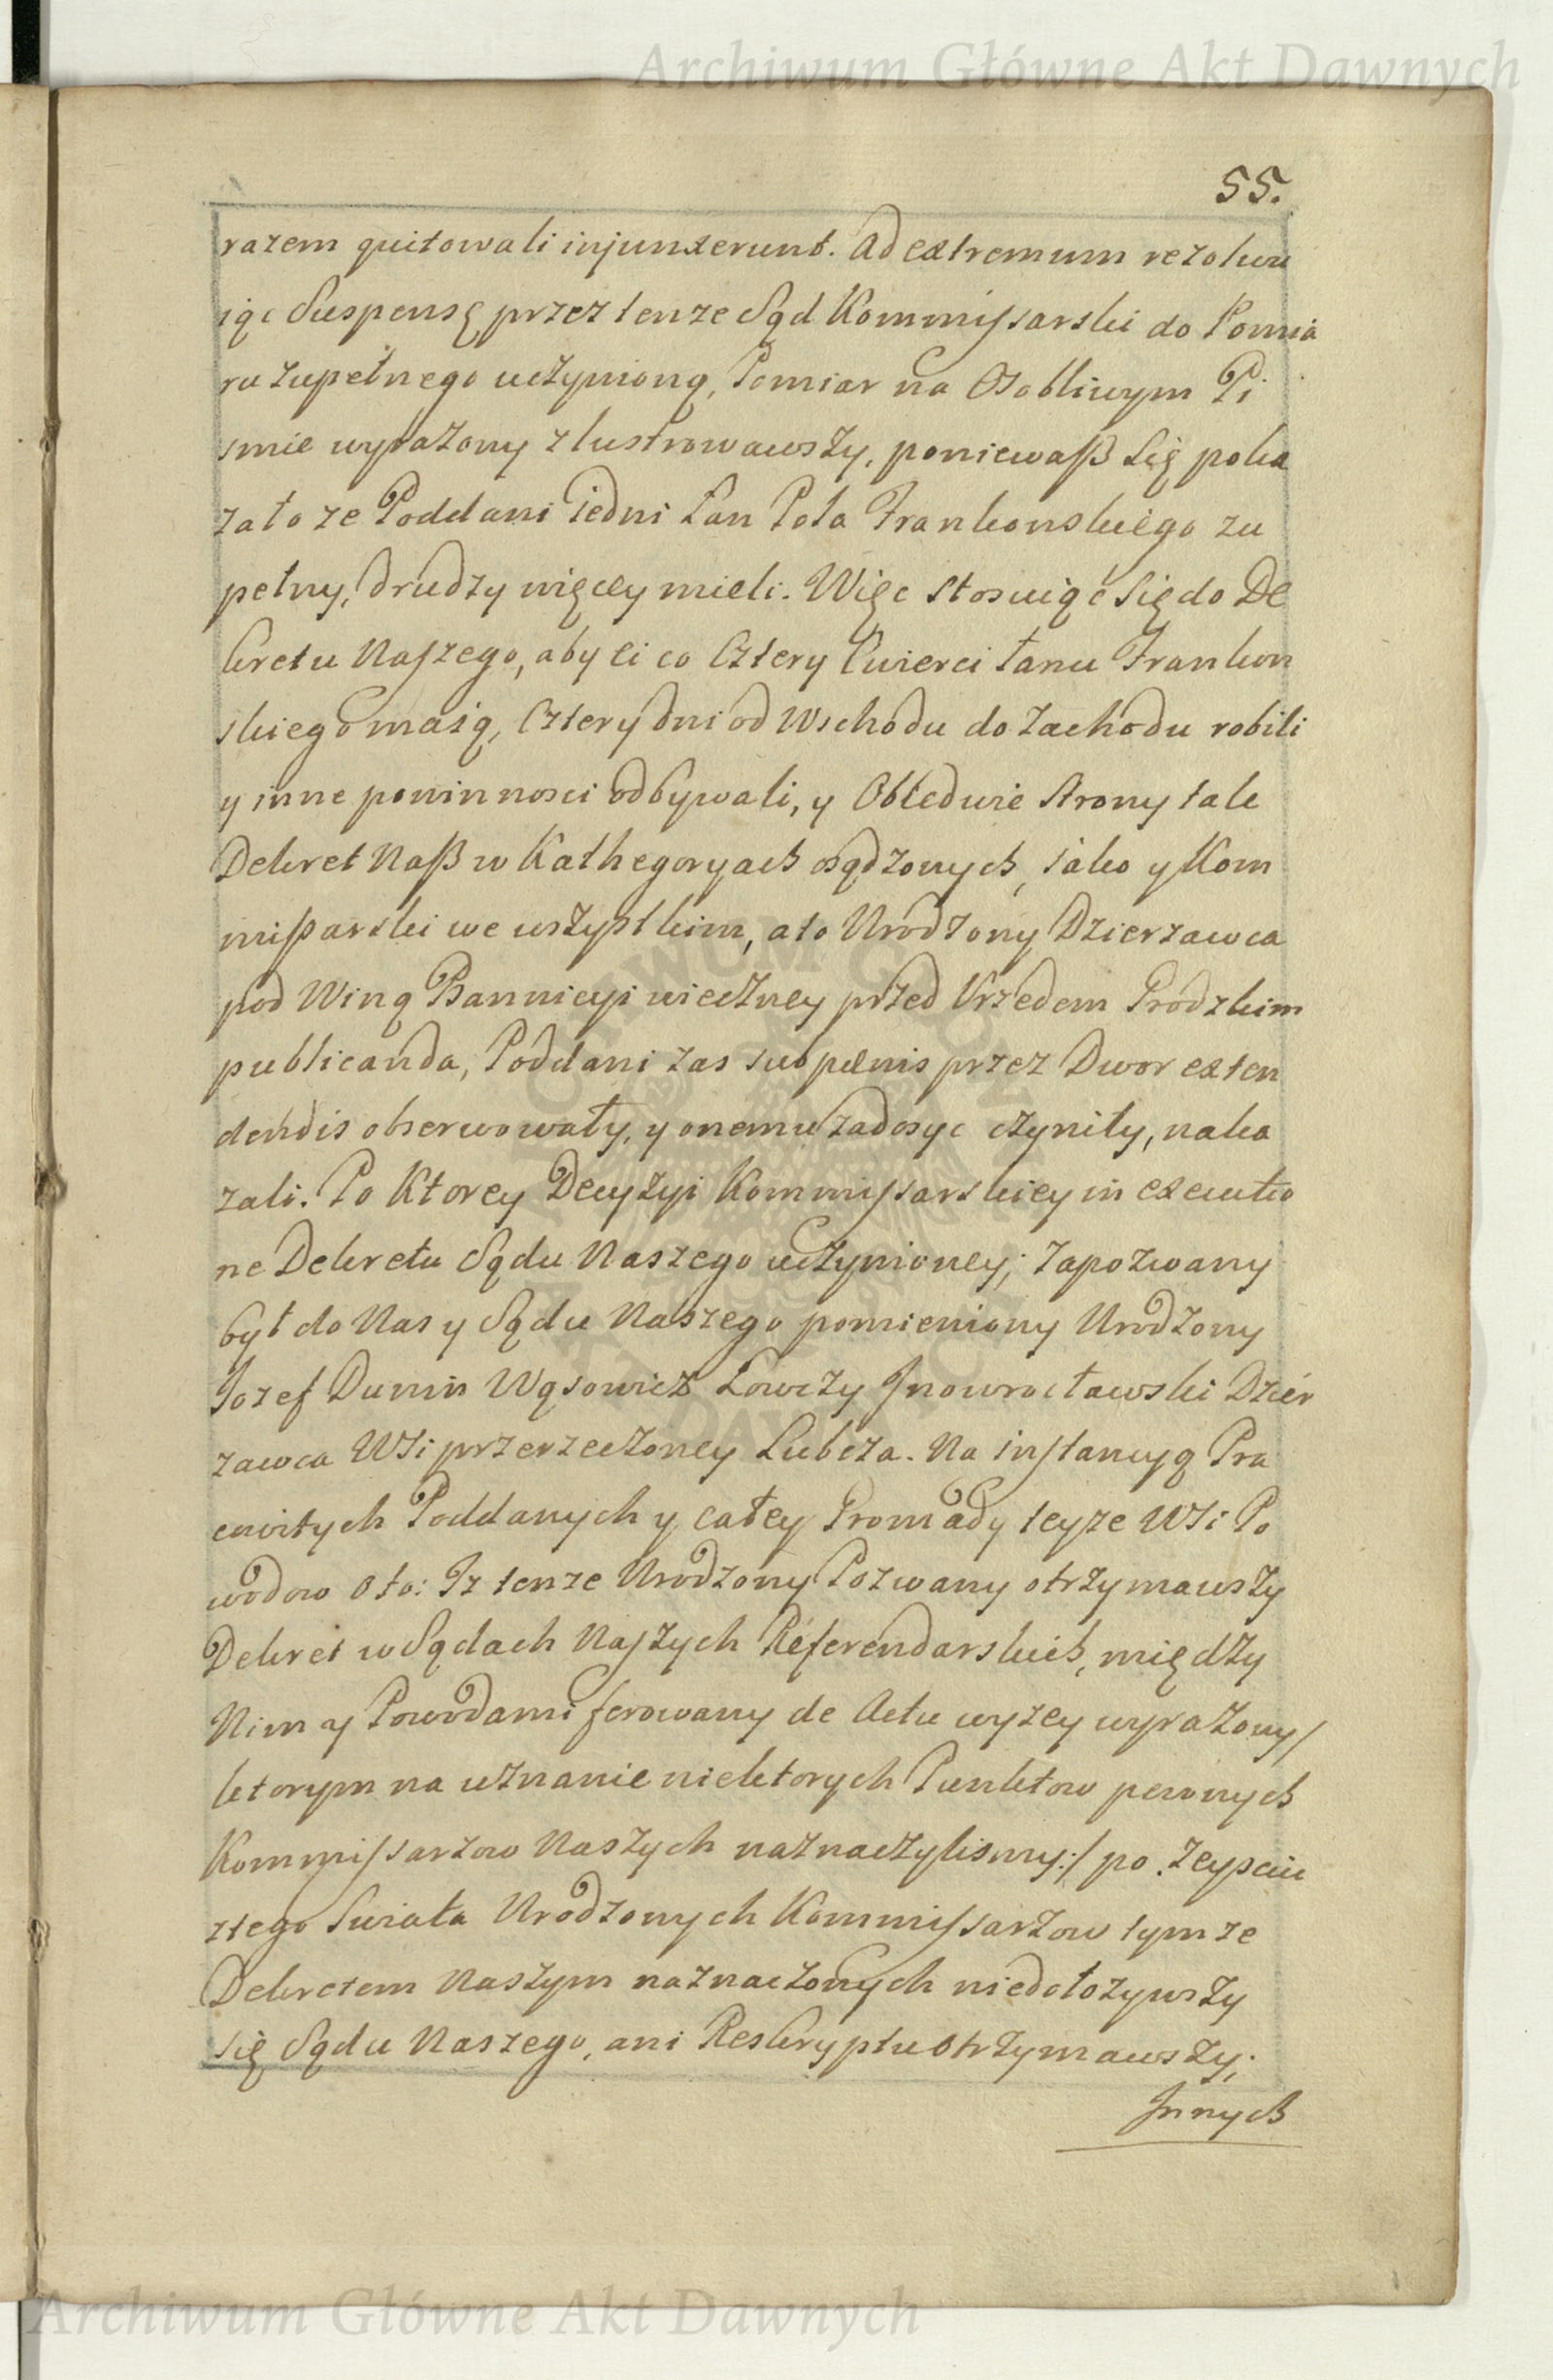 Archiwum Główne Akt Dawnych
55.
razem quitowali injunxerunt. Ad extremum rezolwu
iąc Suspensę przez tenze Sąd Kommissarski do Pomia
ru zupełnego uczynioną, Pomiar na Osobliwym Pi
smie wyrażony zlustrowawszy, poniewasz Się poka
zało ze Poddani iedni Łan Pola Frankonskiego zu
pełny, drudzy więcey mieli. Więc Stosuiąc Się do De
kretu Naszego, aby ci co Cztery Cwierci łanu Frankon
skiego maią, Cztery dni od Wschodu do Zachodu robili
y inne powinnosci odbywali, y Obiedwie Strony tak
Dekret Nasz w Kathegoryach osądzonych, iako y Kom
missarski we wszystkim, a to Urodzony Dzierzawca
pod Winą Bannicyi wieczney przed Urzedem Grodzkim
publicanda, Poddani zas sub pænis przez Dwor exten
dendis obserwowały, y onemu zadosyc czyniły, naka
zali. Po Ktorey Decyzyi Kommissarskiey in executio
ne Dekretu Sądu Naszego uczynioney; zapozwany
był do Nas y Sądu Naszego pomieniony Urodzony
Jozef Dunin Wąsowicz Łowczy Jnowrocławski Dzier
zawca Wsi przerzeczoney Lubcza. Na instancyą Pra
cowitych Poddanych y całey Gromady teyze Wsi Po
wodow Oto: Jz tenze Urodzony Pozwany otrzymawszy
Dekret w Sądach Naszych Referendarskich, między
Nim y Powodami ferowany de Actu wyzey wyrażony/
ktorym na uznanie niektorych Punktow pewnych
Kommissarzow Naszych naznaczylismy:/ po zeysciu
z tego Swiata Urodzonych Kommissarzow tymze
Dekretem Naszym naznaczonych niedołozywszy
się Sądu Naszego, ani Reskryptu otrzymawszy;
Jnnych
Archiwum Główne Akt Dawnych